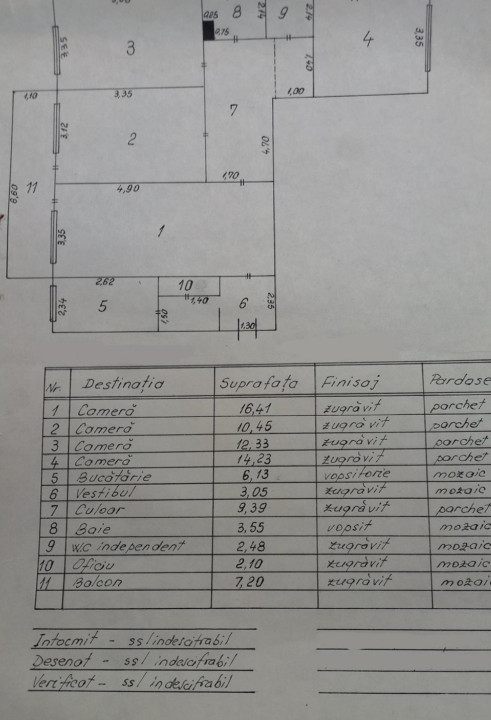 0,25
8
2,14
9
2,14
0,75
3,35
3
4
3,35
1,40
1,00
1,10
3,35
7
3,12
2
4,70
6,60
11
4,90
1,70
1
3,35
2,62
10
1,40
6
2,35
2,34
5
1,50
1,30
Nr. Destinația Suprafața Finisaj Pardose
1 Cameră 16,41 zugrăvit parchet
2 Cameră 10,45 zugrăvit parchet
3 Cameră 12,33 zugrăvit parchet
4 Cameră 14,23 zugrăvit parchet
5 Bucătărie 6,13 vopsitorie mozaic
6 Vestibul 3,05 zugrăvit mozaic
7 Culoar 9,39 zugrăvit parchet
8 Baie 3,55 vopsit mozaic
9 W.C independent 2,48 zugrăvit mozaic
10 Oficiu 2,10 zugrăvit mozaic
11 Balcon 7,20 zugrăvit mozaic
Intocmit - ss/indescifrabil
Desenat - ss/ indescifrabil
Verificat - ss/ indescifrabil